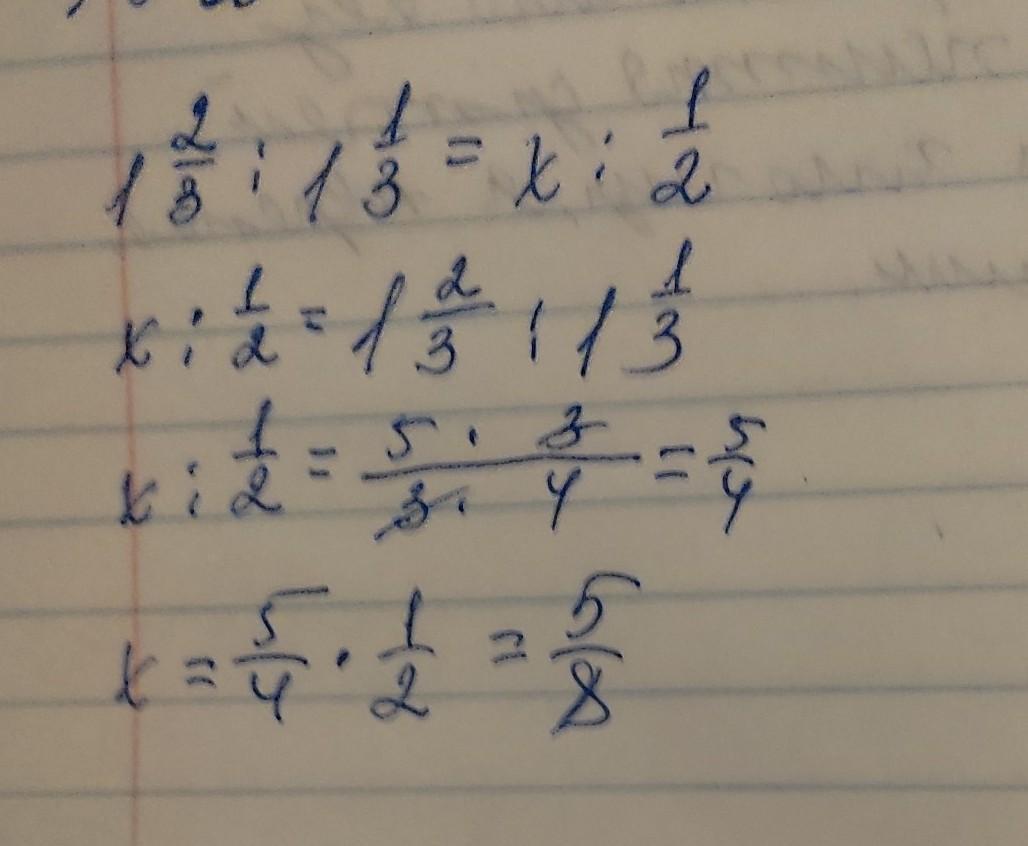 1 2/3 : 1 1/3 = x : 1/2
x : 1/2 = 1 2/3 : 1 1/3
x : 1/2 = 5 · 3 / 3 · 4 = 5/4
x = 5/4 · 1/2 = 5/8